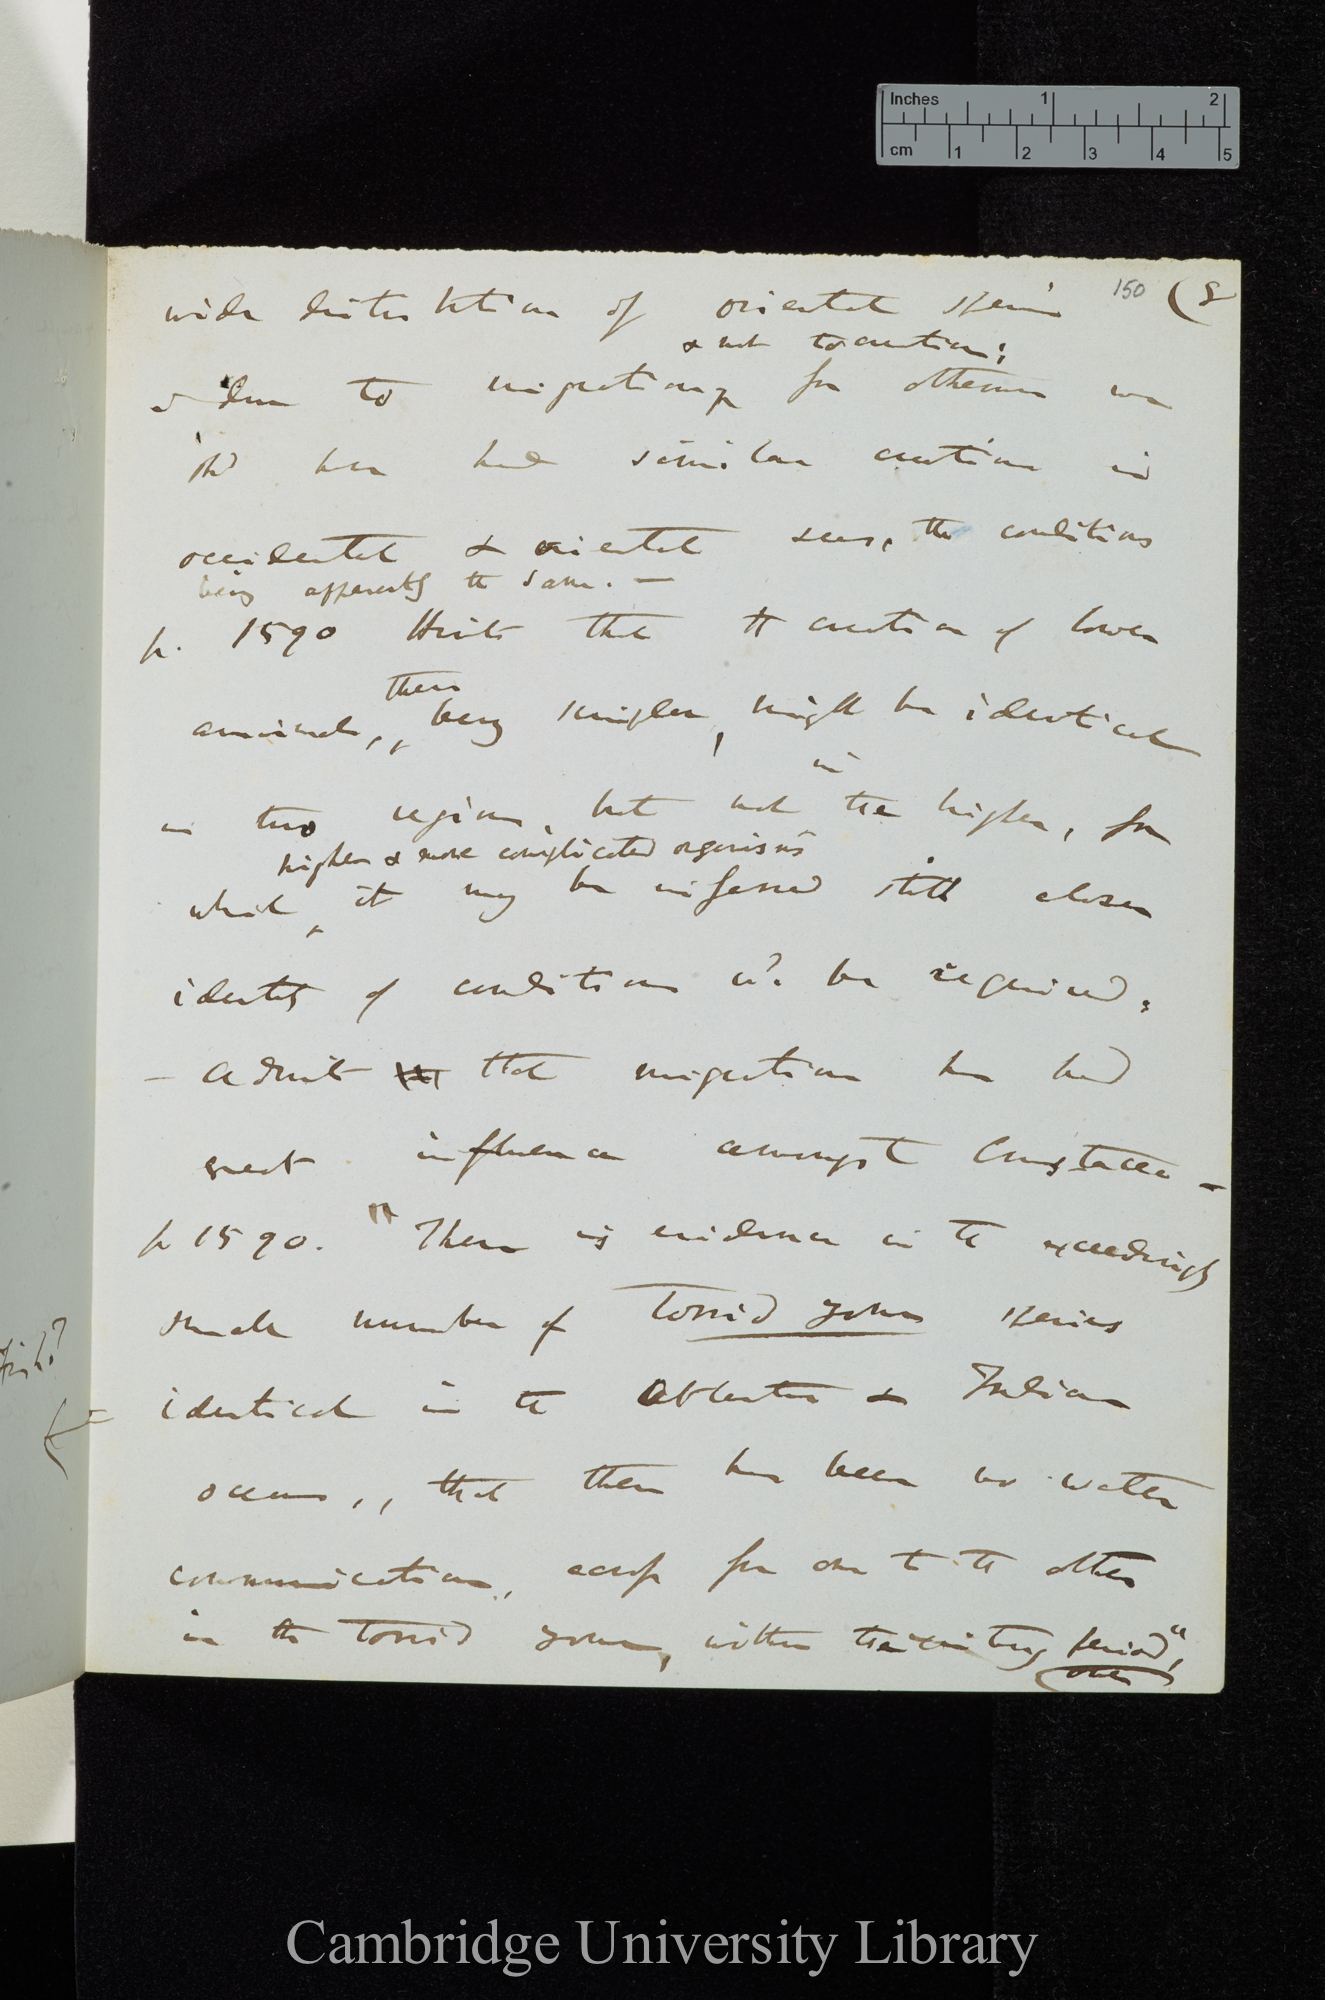 Inches 1 2
cm 1 2 3 4 5
150 (8
wide distribution of oriental species
& not to creation;
is due to migration, for otherwise we
shd have had similar creations in
occidental & oriental seas, the conditions
being apparently the same. —
p. 1590 Hints that the creation of lower
these
animals, being simpler, might be identical
in
in two regions, but not the higher, for
higher & more complicated organisms
which it may be inferred still closer
identity of conditions wd. be required.
— Admits that migration has had
great influence amongst Crustacea —
p 1590. "There is evidence in the exceedingly
small number of torrid zone species
identical in the Atlantic & Indian
oceans,, that there has been no water
communication, across from one to the other
in the torrid zone, within the existing period",
over
Fish?
Cambridge University Library